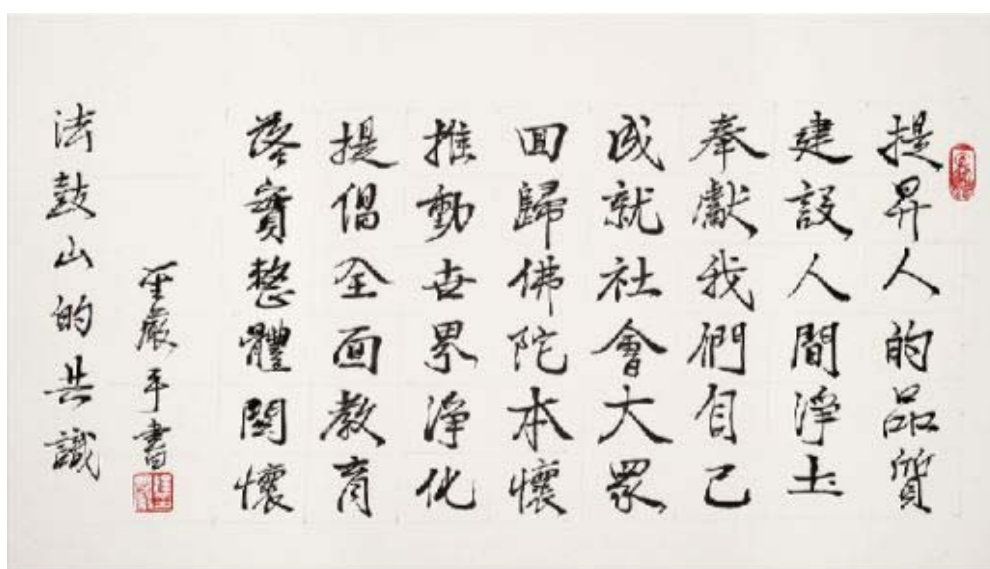 提昇人的品質
建設人間淨土
奉獻我們自己
成就社會大眾
回歸佛陀本懷
推動世界淨化
提倡全面教育
落實整體關懷
聖嚴手書
法鼓山的共識